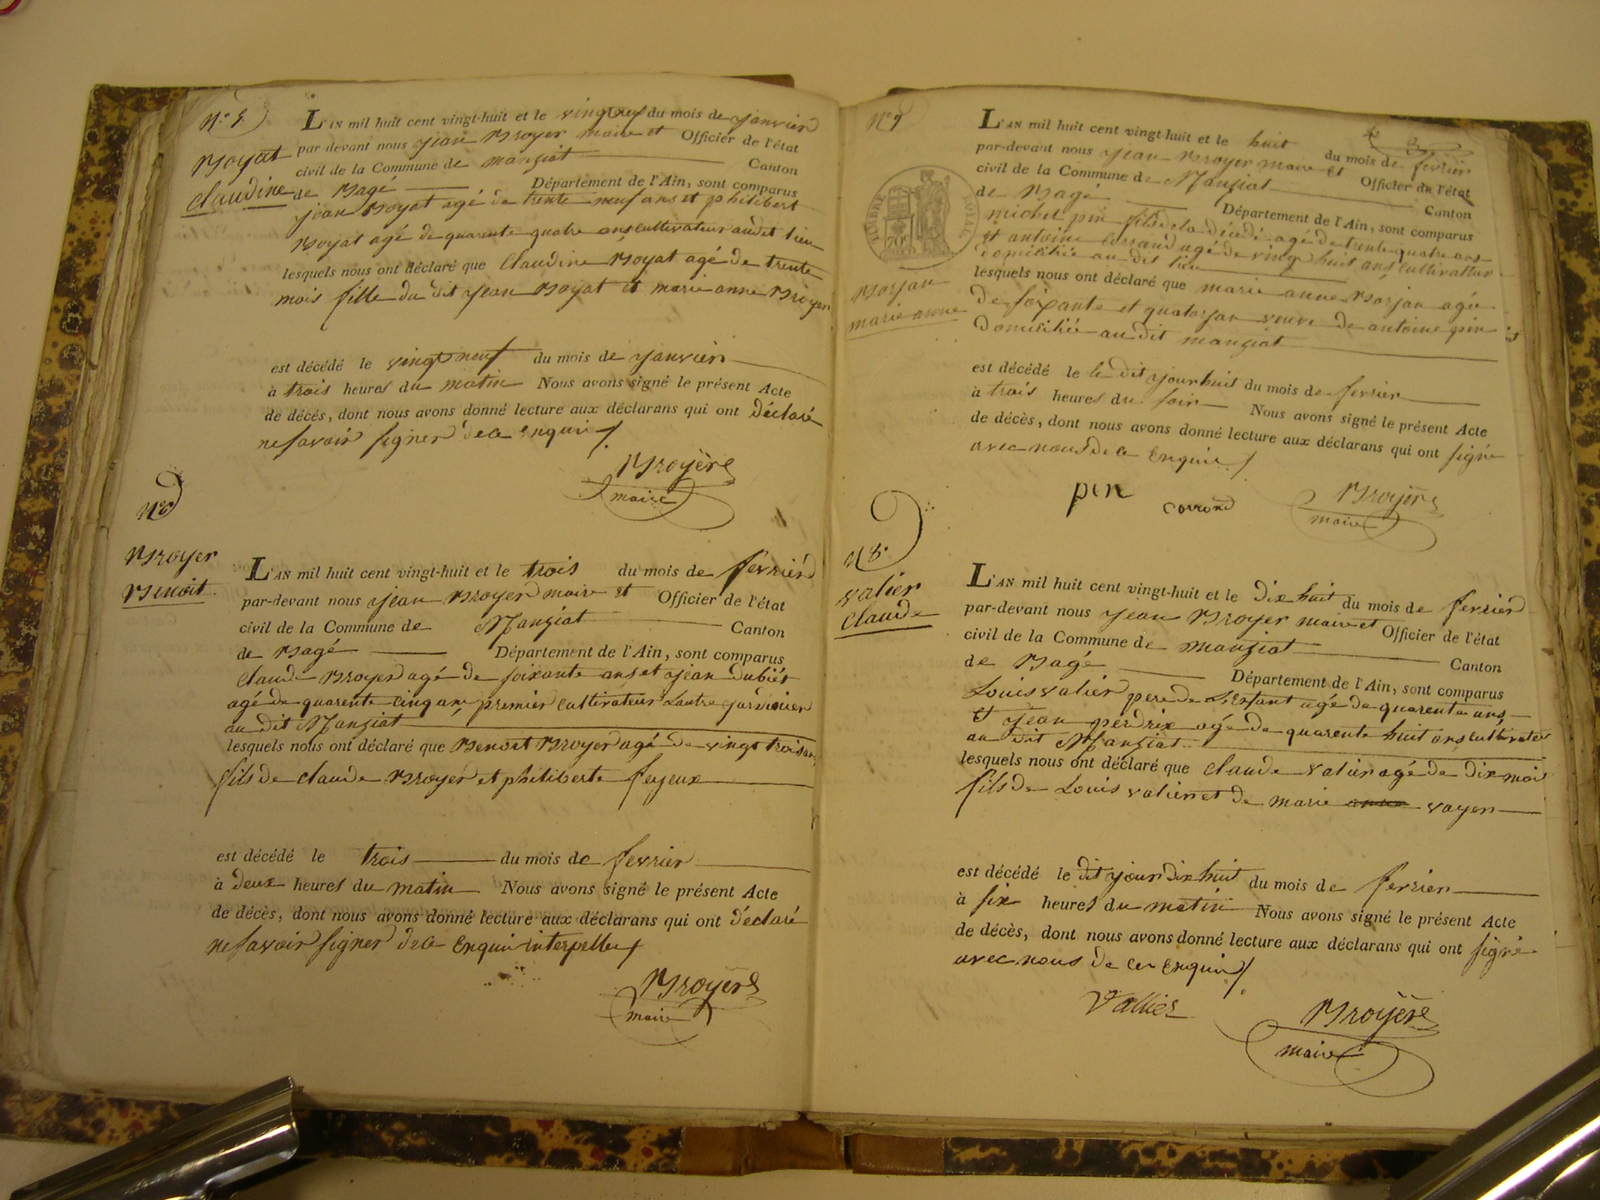 N° 5
Boyat
Claudine
L'AN mil huit cent vingt-huit et le vingt neuf du mois de janvier
par-devant nous jean Broyer maire et Officier de l'état
civil de la Commune de manziat Canton
de Bagé Département de l'Ain, sont comparus
jean Boyat agé de trente neuf ans et philibert
Boyat agé de quarente quatre ans cultivateur audit lieu
lesquels nous ont déclaré que Claudine Boyat agé de trente
mois fille du dit jean Boyat et marie anne Broyer
est décédé le vingt neuf du mois de janvier
à trois heures du matin Nous avons signé le présent Acte
de décès, dont nous avons donné lecture aux déclarans qui ont déclaré
ne savoir signer de ce enquis
Broyere
maire
N° 6
Broyer
Benoit
L'AN mil huit cent vingt-huit et le trois du mois de fevrier
par-devant nous jean Broyer maire et Officier de l'état
civil de la Commune de Manziat Canton
de Bagé Département de l'Ain, sont comparus
Claude Broyer agé de soixante ans et jean dubiet
agé de quarente cinq ans premier cultivateur l'autre jardinier
au dit Manziat
lesquels nous ont déclaré que Benoit Broyer agé de vingt trois ans
fils de claude Broyer et philiberte feyeux
est décédé le trois du mois de fevrier
à deux heures du matin Nous avons signé le présent Acte
de décès, dont nous avons donné lecture aux déclarans qui ont déclaré
ne savoir signer de ce enquis interpellés
Broyere
maire
N° 7
L'AN mil huit cent vingt-huit et le huit du mois de fevrier
par-devant nous jean Broyer maire et Officier de l'état
civil de la Commune de Manziat Canton
de Bagé Département de l'Ain, sont comparus
TIMBRE ROYAL
70
michel pin fils de la décédé agé de trente quatre ans
et antoine Corrand agé de vingt huit ans cultivateur
domiciliée au dit lieu
lesquels nous ont déclaré que marie anne Borjan agée
Borjan
marie anne
de soixante et quatorze veuve de antoine pin
domiciliée au dit manziat
est décédé le le dit jour huit du mois de fevrier
à trois heures du soir Nous avons signé le présent Acte
de décès, dont nous avons donné lecture aux déclarans qui ont signé
avec nous de ce enquis
pin corrand Broyere
maire
N° 8
valier
Claude
L'AN mil huit cent vingt-huit et le dix huit du mois de fevrier
par-devant nous jean Broyer maire et Officier de l'état
civil de la Commune de manziat Canton
de Bagé Département de l'Ain, sont comparus
Louis valier pere de L'enfant agé de quarente ans
et jean perdrix agé de quarente huit ans cultivateur
au dit Manziat
lesquels nous ont déclaré que claude valier agé de dix mois
fils de Louis valier et de marie voyer
est décédé le dit jour dix huit du mois de fevrier
à six heures du matin Nous avons signé le présent Acte
de décès, dont nous avons donné lecture aux déclarans qui ont signé
avec nous de ce enquis
Vallier Broyere
maire